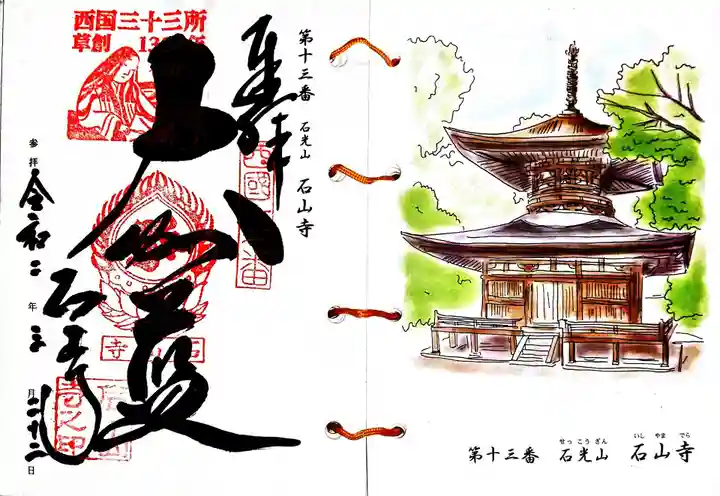 西国三十三所
草創 13
奉拝
第十三番 石光山 石山寺
大伽藍
参拝 令和二年 三月二十二日
石山寺
第十三番 石光山 石山寺
せっこうざん いしやまでら